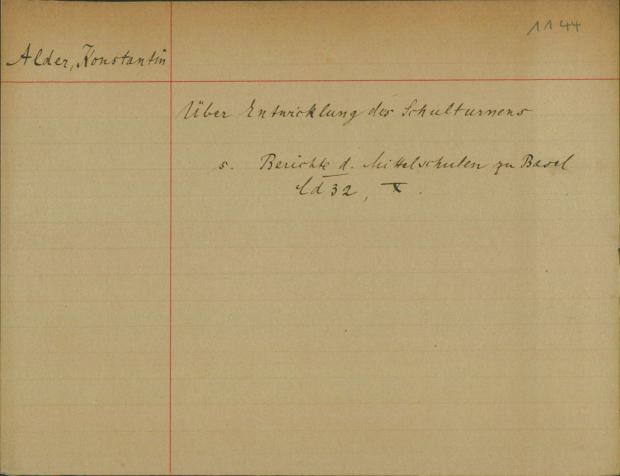 1144
Alder, Konstantin
Über Entwicklung des Schulturnens
s. Berichte d. Mittelschulen zu Basel
Ld 32, X.